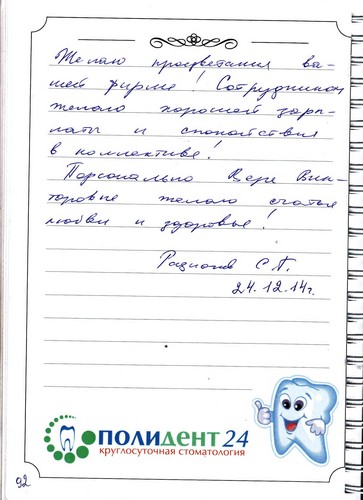 Желаю процветания ва-
шей фирме! Сотрудникам
желаю хорошей зарп-
латы и спокойствия
в коллективе!
Персонально Вере Вик-
торовне желаю счастья
любви и здоровье!
С.П.
24.12.14г.
ПОЛИДЕНТ 24
круглосуточная стоматология
92